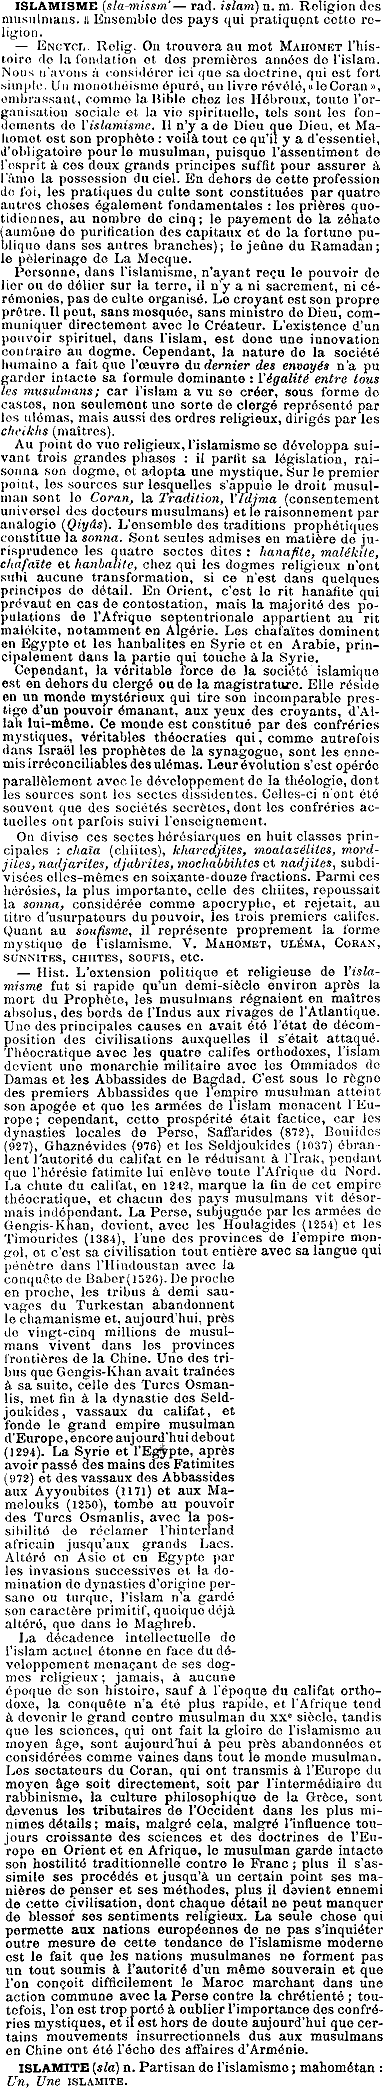 ISLAMISME (sla-missm' — rad. islam) n. m. Religion des
musulmans. ‖ Ensemble des pays qui pratiquent cette re-
ligion.
— ENCYCL. Relig. On trouvera au mot MAHOMET l'his-
toire de la fondation et des premières années de l'islam.
Nous n'avons à considérer ici que sa doctrine, qui est fort
simple. Un monothéisme épuré, un livre révélé, « le Coran »,
embrassant, comme la Bible chez les Hébreux, toute l'or-
ganisation sociale et la vie spirituelle, tels sont les fon-
dements de l'islamisme. Il n'y a de Dieu que Dieu, et Ma-
homet est son prophète : voilà tout ce qu'il y a d'essentiel,
d'obligatoire pour le musulman, puisque l'assentiment de
l'esprit à ces deux grands principes suffit pour assurer à
l'âme la possession du ciel. En dehors de cette profession
de foi, les pratiques du culte sont constituées par quatre
autres choses également fondamentales : les prières quo-
tidiennes, au nombre de cinq ; le payement de la zékate
(aumône de purification des capitaux et de la fortune pu-
blique dans ses autres branches) ; le jeûne du Ramadan ;
le pèlerinage de La Mecque.
Personne, dans l'islamisme, n'ayant reçu le pouvoir de
lier ou de délier sur la terre, il n'y a ni sacrement, ni cé-
rémonies, pas de culte organisé. Le croyant est son propre
prêtre. Il peut, sans mosquée, sans ministre de Dieu, com-
muniquer directement avec le Créateur. L'existence d'un
pouvoir spirituel, dans l'islam, est donc une innovation
contraire au dogme. Cependant, la nature de la société
humaine a fait que l'œuvre du dernier des envoyés n'a pu
garder intacte sa formule dominante : l'égalité entre tous
les musulmans ; car l'islam a vu se créer, sous forme de
castes, non seulement une sorte de clergé représenté par
les ulémas, mais aussi des ordres religieux, dirigés par les
cheikhs (maîtres).
Au point de vue religieux, l'islamisme se développa sui-
vant trois grandes phases : il parfit sa législation, rai-
sonna son dogme, et adopta une mystique. Sur le premier
point, les sources sur lesquelles s'appuie le droit musul-
man sont le Coran, la Tradition, l'Idjma (consentement
universel des docteurs musulmans) et le raisonnement par
analogie (Qiyâs). L'ensemble des traditions prophétiques
constitue la sonna. Sont seules admises en matière de ju-
risprudence les quatre sectes dites : hanafite, malékite,
chafaïte et hanbalite, chez qui les dogmes religieux n'ont
subi aucune transformation, si ce n'est dans quelques
principes de détail. En Orient, c'est le rit hanafite qui
prévaut en cas de contestation, mais la majorité des po-
pulations de l'Afrique septentrionale appartient au rit
malékite, notamment en Algérie. Les chafaïtes dominent
en Egypte et les hanbalites en Syrie et en Arabie, prin-
cipalement dans la partie qui touche à la Syrie.
Cependant, la véritable force de la société islamique
est en dehors du clergé ou de la magistrature. Elle réside
en un monde mystérieux qui tire son incomparable pres-
tige d'un pouvoir émanant, aux yeux des croyants, d'Al-
lah lui-même. Ce monde est constitué par des confréries
mystiques, véritables théocraties qui, comme autrefois
dans Israël les prophètes de la synagogue, sont les enne-
mis irréconciliables des ulémas. Leur évolution s'est opérée
parallèlement avec le développement de la théologie, dont
les sources sont les sectes dissidentes. Celles-ci n'ont été
souvent que des sociétés secrètes, dont les confréries ac-
tuelles ont parfois suivi l'enseignement.
On divise ces sectes hérésiarques en huit classes prin-
cipales : chaïa (chiites), kharedjites, moatazélites, mord-
jites, nadjarites, djabrites, mochabbihtes et nadjites, subdi-
visées elles-mêmes en soixante-douze fractions. Parmi ces
hérésies, la plus importante, celle des chiites, repoussait
la sonna, considérée comme apocryphe, et rejetait, au
titre d'usurpateurs du pouvoir, les trois premiers califes.
Quant au soufisme, il représente proprement la forme
mystique de l'islamisme. V. MAHOMET, ULÉMA, CORAN,
SUNNITES, CHIITES, SOUFIS, etc.
— Hist. L'extension politique et religieuse de l'isla-
misme fut si rapide qu'un demi-siècle environ après la
mort du Prophète, les musulmans régnaient en maîtres
absolus, des bords de l'Indus aux rivages de l'Atlantique.
Une des principales causes en avait été l'état de décom-
position des civilisations auxquelles il s'était attaqué.
Théocratique avec les quatre califes orthodoxes, l'islam
devient une monarchie militaire avec les Ommiades de
Damas et les Abbassides de Bagdad. C'est sous le règne
des premiers Abbassides que l'empire musulman atteint
son apogée et que les armées de l'islam menacent l'Eu-
rope ; cependant, cette prospérité était factice, car les
dynasties locales de Perse, Saffarides (872), Bouiides
(927), Ghaznévides (976) et les Seldjoukides (1037) ébran-
lent l'autorité du califat en le réduisant à l'Irak, pendant
que l'hérésie fatimite lui enlève toute l'Afrique du Nord.
La chute du califat, en 1242, marque la fin de cet empire
théocratique, et chacun des pays musulmans vit désor-
mais indépendant. La Perse, subjuguée par les armées de
Gengis-Khan, devient, avec les Houlagides (1254) et les
Timourides (1384), l'une des provinces de l'empire mon-
gol, et c'est sa civilisation tout entière avec sa langue qui
pénètre dans l'Hindoustan avec la
conquête de Baber (1526). De proche
en proche, les tribus à demi sau-
vages du Turkestan abandonnent
le chamanisme et, aujourd'hui, près
de vingt-cinq millions de musul-
mans vivent dans les provinces
frontières de la Chine. Une des tri-
bus que Gengis-Khan avait traînées
à sa suite, celle des Turcs Osman-
lis, met fin à la dynastie des Seld-
joukides, vassaux du califat, et
fonde le grand empire musulman
d'Europe, encore aujourd'hui debout
(1294). La Syrie et l'Egypte, après
avoir passé des mains des Fatimites
(972) et des vassaux des Abbassides
aux Ayyoubites (1171) et aux Ma-
melouks (1250), tombe au pouvoir
des Turcs Osmanlis, avec la pos-
sibilité de réclamer l'hinterland
africain jusqu'aux grands Lacs.
Altéré en Asie et en Egypte par
les invasions successives et la do-
mination de dynasties d'origine per-
sane ou turque, l'islam n'a gardé
son caractère primitif, quoique déjà
altéré, que dans le Maghreb.
La décadence intellectuelle de
l'islam actuel étonne en face du dé-
veloppement menaçant de ses dog-
mes religieux ; jamais, à aucune
époque de son histoire, sauf à l'époque du califat ortho-
doxe, la conquête n'a été plus rapide, et l'Afrique tend
à devenir le grand centre musulman du XXe siècle, tandis
que les sciences, qui ont fait la gloire de l'islamisme au
moyen âge, sont aujourd'hui à peu près abandonnées et
considérées comme vaines dans tout le monde musulman.
Les sectateurs du Coran, qui ont transmis à l'Europe du
moyen âge soit directement, soit par l'intermédiaire du
rabbinisme, la culture philosophique de la Grèce, sont
devenus les tributaires de l'Occident dans les plus mi-
nimes détails ; mais, malgré cela, malgré l'influence tou-
jours croissante des sciences et des doctrines de l'Eu-
rope en Orient et en Afrique, le musulman garde intacte
son hostilité traditionnelle contre le Franc ; plus il s'as-
simile ses procédés et jusqu'à un certain point ses ma-
nières de penser et ses méthodes, plus il devient ennemi
de cette civilisation, dont chaque détail ne peut manquer
de blesser ses sentiments religieux. La seule chose qui
permette aux nations européennes de ne pas s'inquiéter
outre mesure de cette tendance de l'islamisme moderne
est le fait que les nations musulmanes ne forment pas
un tout soumis à l'autorité d'un même souverain et que
l'on conçoit difficilement le Maroc marchant dans une
action commune avec la Perse contre la chrétienté ; tou-
tefois, l'on est trop porté à oublier l'importance des confré-
ries mystiques, et il est hors de doute aujourd'hui que cer-
tains mouvements insurrectionnels dus aux musulmans
en Chine ont été l'écho des affaires d'Arménie.
ISLAMITE (sla) n. Partisan de l'islamisme ; mahométan :
Un, Une ISLAMITE.